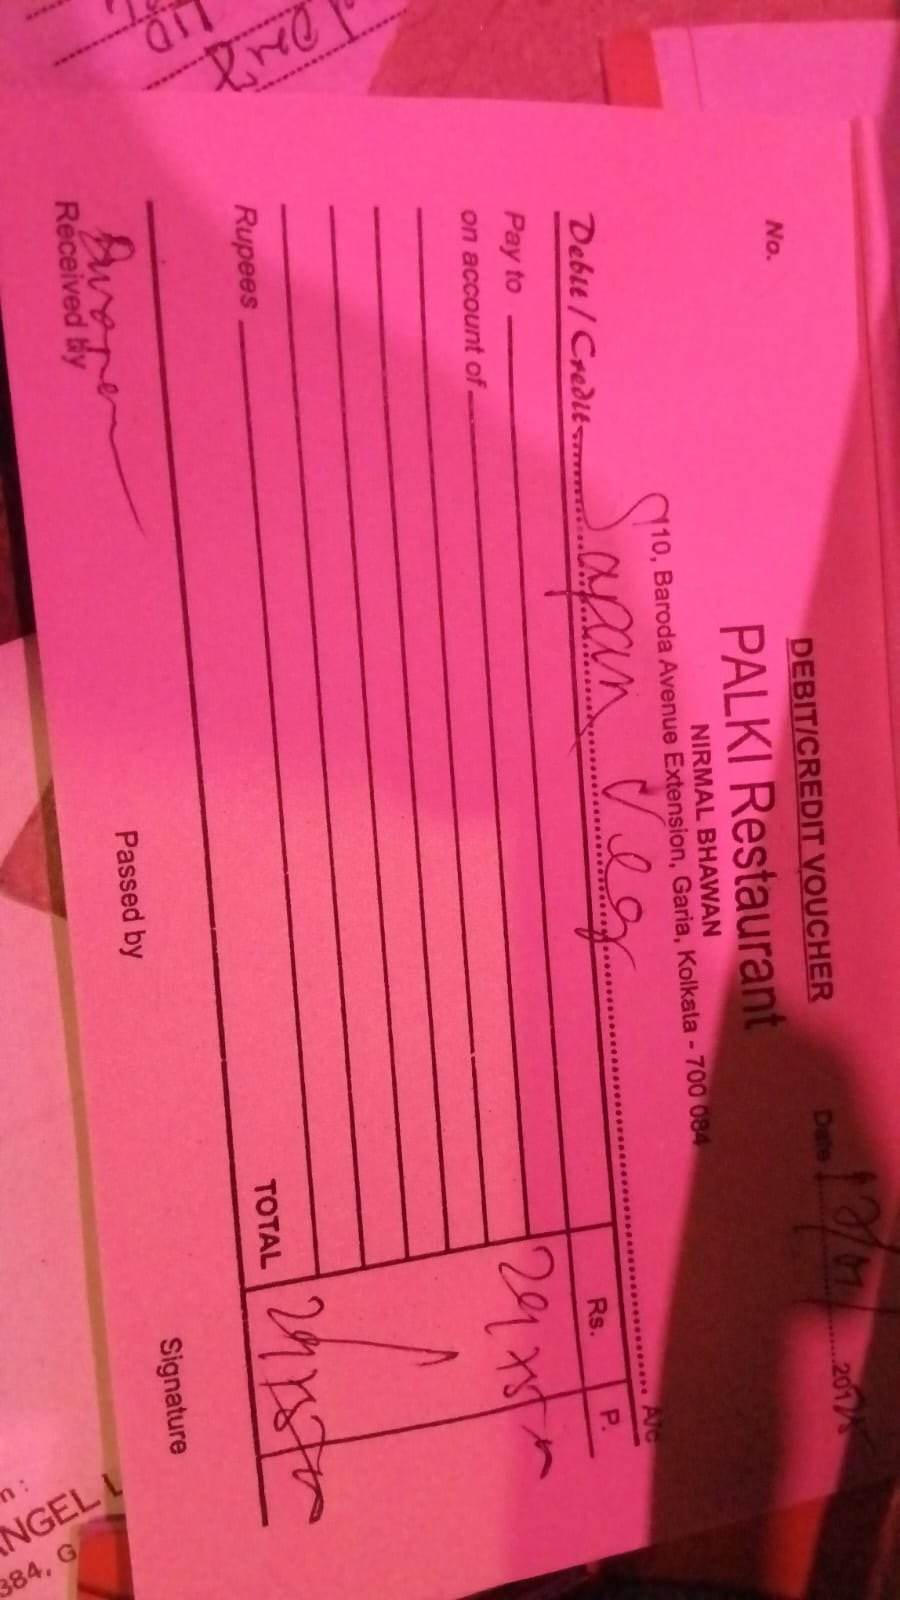 DEBIT/CREDIT VOUCHER
No.
Date 12/01/ 201
PALKI Restaurant
NIRMAL BHAWAN
110, Baroda Avenue Extension, Garia, Kolkata - 700 084
Debit / Credit Sapan Veg A/c
Rs. P.
Pay to
on account of
Rupees
TOTAL
Received by
Passed by
Signature